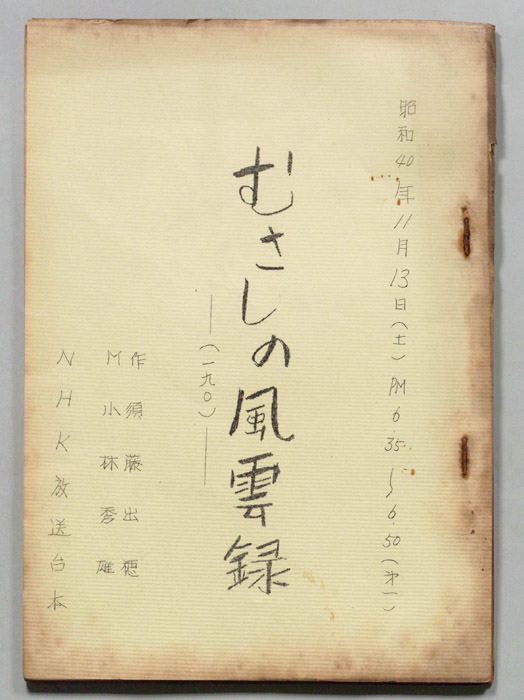 昭和40年11月13日(土) PM 6.35.〜6.50(第一)
むさしの風雲録
―(一九〇)―
作 須藤出穂
M 小林秀雄
NHK放送台本